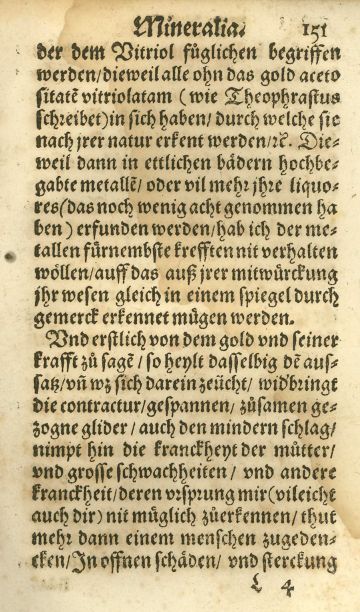 Mineralia. 151
der dem Vitriol füglichen begriffen
werden/dieweil alle ohn das gold aceto
sitatē vitriolatam (wie Theophrastus
schreibet) in sich haben/ durch welche sie
nach jrer natur erkent werden/ꝛc. Die-
weil dann in ettlichen bädern hochbe-
gabte metallē/ oder vil mehr jhre liquo-
res (das noch wenig acht genommen ha
ben) erfunden werden/hab ich der me-
tallen fürnembste krefften nit verhalten
wöllen/auff das auß jrer mitwürckung
jhr wesen gleich in einem spiegel durch
gemerck erkennet mügen werden.
Vnd erstlich von dem gold vnd seiner
krafft zů sagē/ so heylt dasselbig dē aus-
satz/vñ wz sich darein zeücht/ wid'bringt
die contractur/gespannen/ zůsamen ge-
zogne glider/ auch den mindern schlag/
nimpt hin die kranckheyt der můtter/
vnd grosse schwachheiten/ vnd andere
kranckheit/deren vrsprung mir (vileicht
auch dir) nit müglich zůerkennen/ thut
mehr dann einem menschen zugeden-
cken/In offnen schäden/ vnd sterckung
L 4